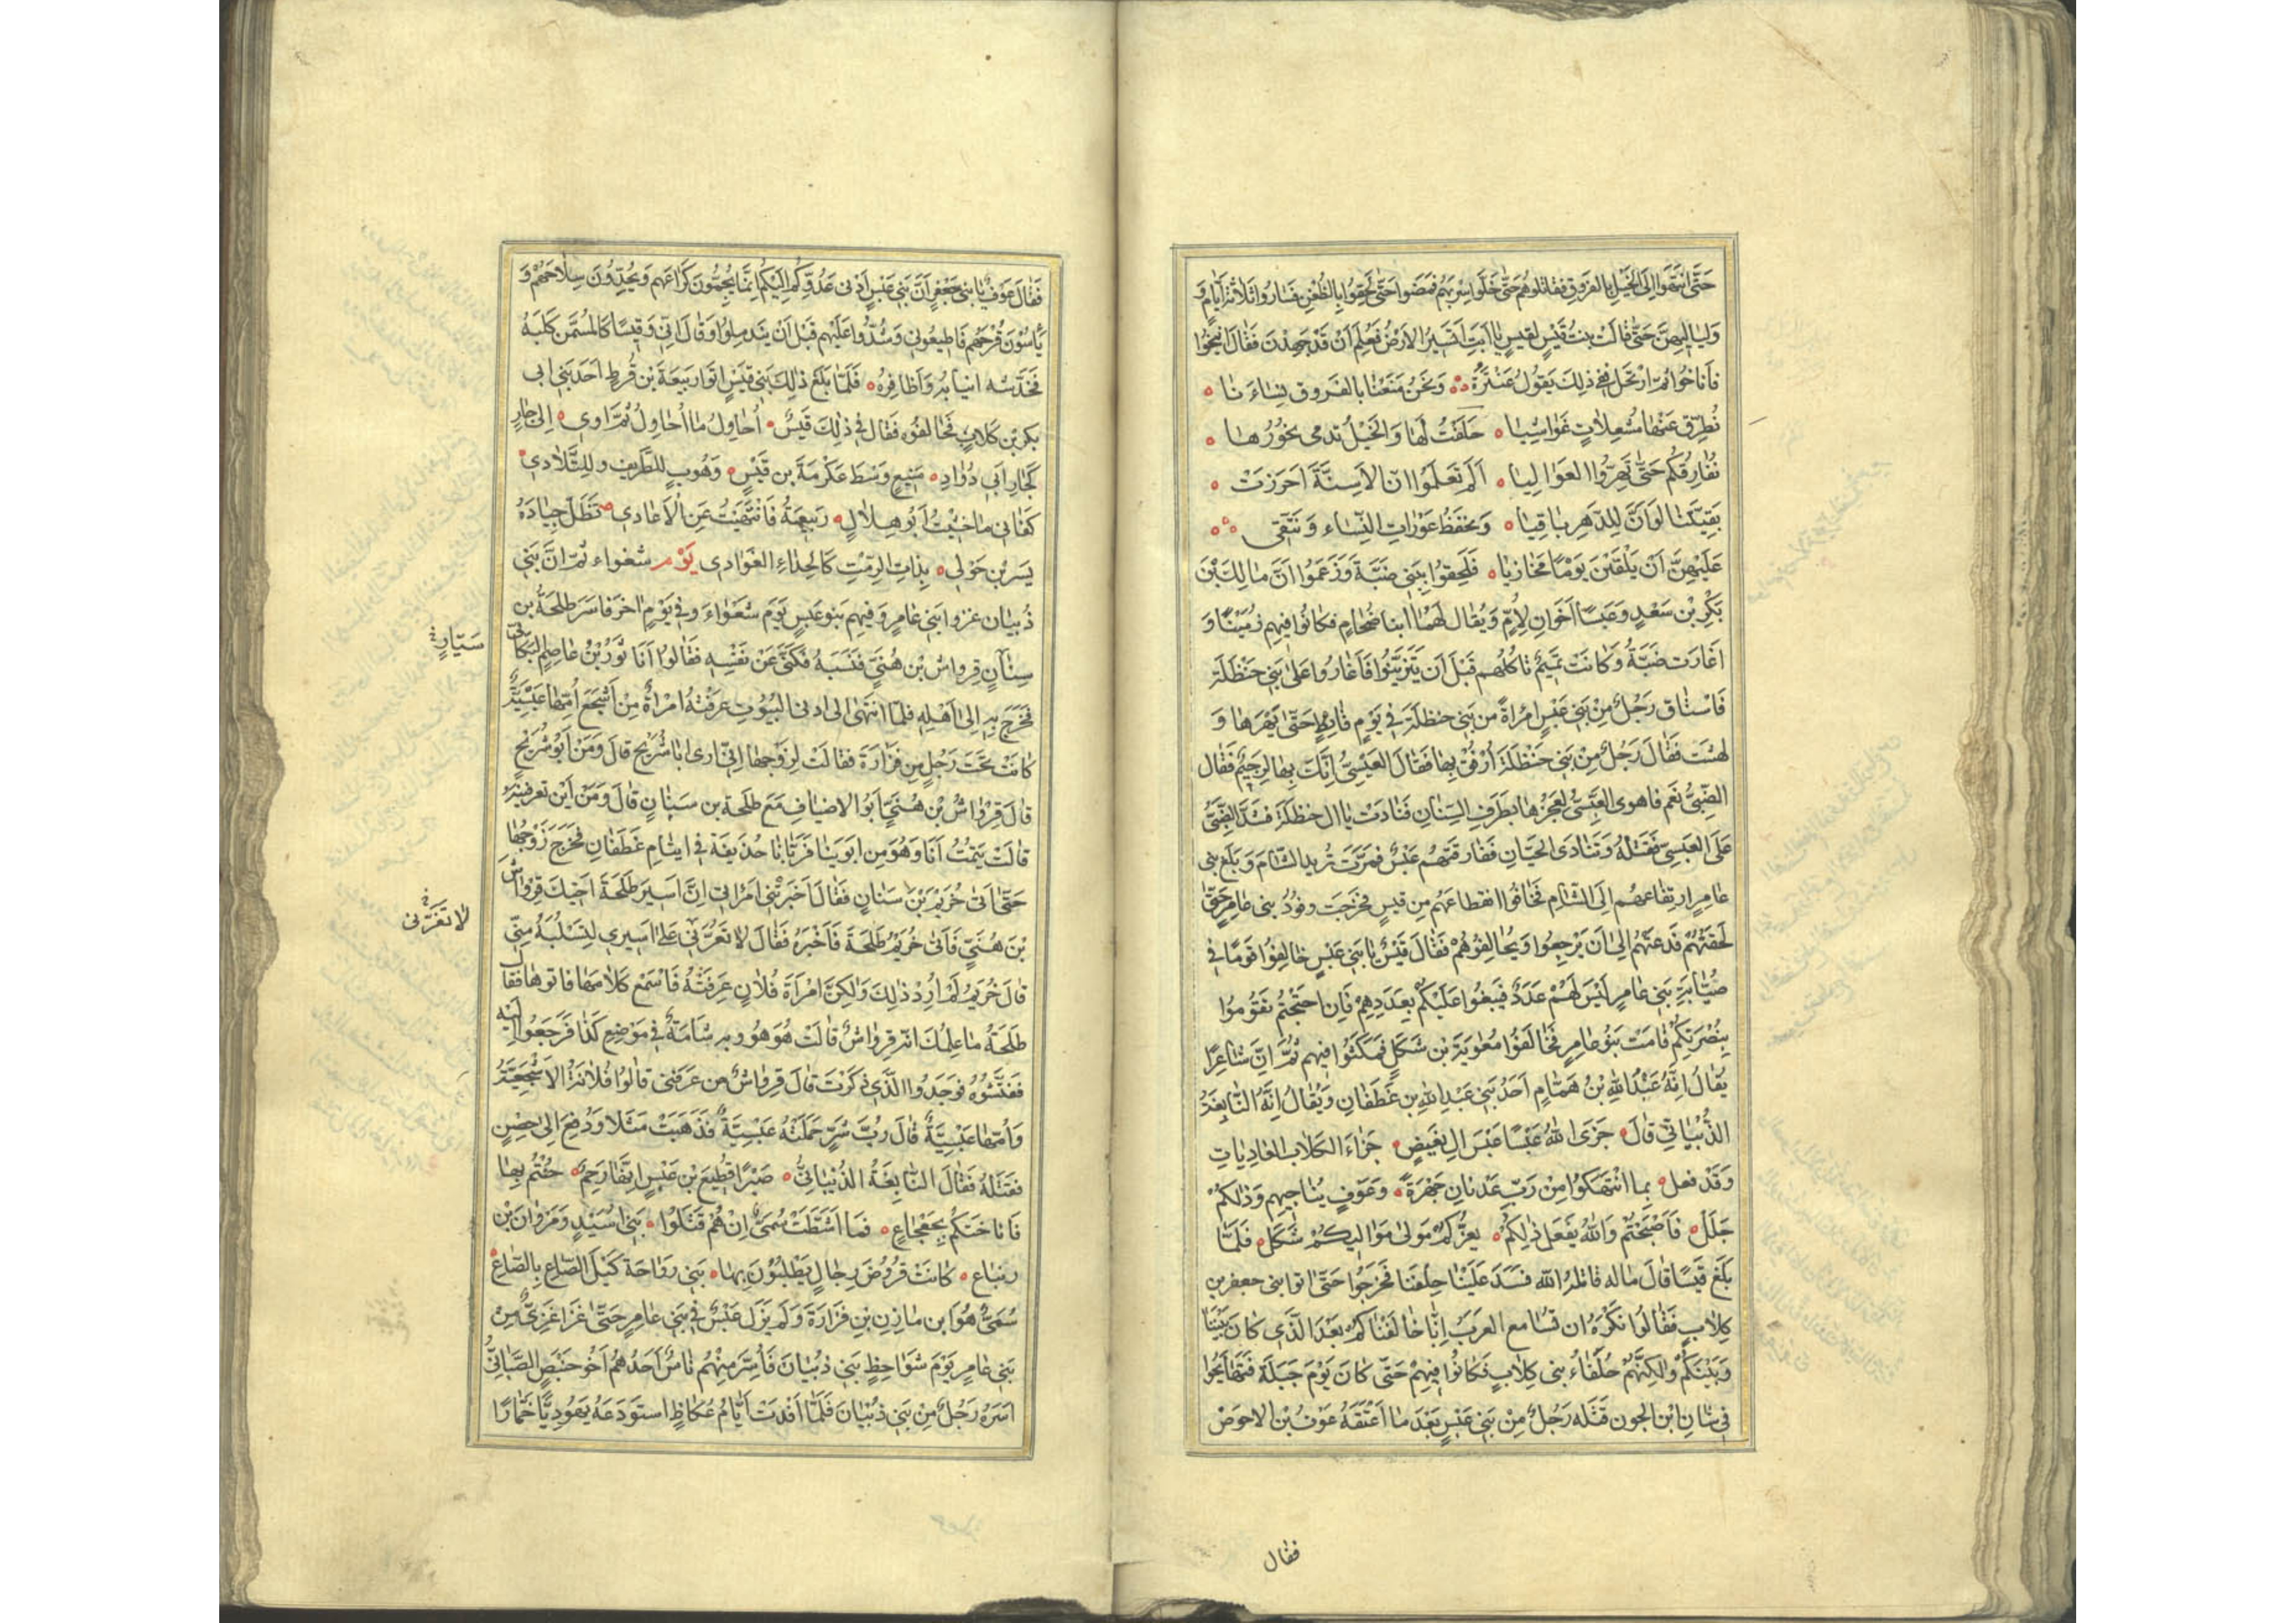 حَتَّى انتَهَوا اِلَى الخَيْلِ بالفَرَوقِ فَقاتَلوهُم حَتّى خَلَّوا سِرْبَهُم فَمَضَوا حَتّى لَحِقُوا بِالظُعُنِ فَسَارُوا ثَلاثَةَ اَيّامٍ وَ
وَلَيَالِيهنَّ حَتّى قالَت بِنتُ قَيْسٍ لِقيسٍ يا اَبَتِ اَتَسِيرُ الاَرْضُ فَعَلِمَ اَنْ قَدْ جَهِدْنَ فَقالَ انِيخُوا
فاَناخُوا ثُمّ ارتَحَل فَفي ذلِكَ يَقولُ عَنتَرةُ وَنَحنُ مَنَعْنا بالفَروقِ نِسَاءَنا
نُطَرِّق عَنْها مُشْعِلاتٍ غَواشِيا حَلَفْتُ لَهَا وَالخَيْلُ تدمى نحُورُها
نُفارِقُكُم حَتّى تَهِرُّوا العَوَالِيا اَلَم تَعلَمُوا انّ الاَسِنَّةَ اَحَرَزتْ
بَقِيَّتَنا لَو اَنَّ لِلدّهرِ باقِيا وَنَحفَظُ عَوْراتِ النِّساء وَنَتّقى
عَلَيْهِنَّ اَنْ يَلْقَيْنَ يَوْمًا مَخازيا فَلَحِقوا بِبَني ضَبَّةَ وَزَعَمُوا انَّ مالِكَ بْنَ
بَكْرِ بْنِ سَعْدٍ وَعَبسًا اَخَوانِ لِأُمٍّ وَيُقال لَهُما ابنا ضُخَامٍ فكانُوا فيهِم زَمَيْنًا وَ
اغارَت ضَبّةُ وَكانَت تَمِيمٌ تاكُلُهم قَبْلَ اَن يَتَرَبَّبُوا فَاَغارُوا عَلى بَني حَنْظَلَة
فَاسْتاقَ رَجُلٌ مِنْ بَني عَبْسٍ امْرَاةً من بَني حنظلَة في يَوْمٍ قائظٍ حَتّى بَهَرها وَ
لهثَت فَقالَ رَجُلٌ مِنْ بَني حَنْظَلةَ اُرْفُقْ بِها فَقالَ العَبْسِيُّ اِنَّكَ بِها لَرحِيمٌ فَقال
الضّبيُّ نَعَم فاهوى العَبْسِيُّ لِعَجُزِها بِطَرَفِ السِّنانِ فَنادَتْ يا ال حنظلَة فَشَدَّ الضَّبِّيُّ
عَلَى العَبسِيّ فَقَتَلَهُ وَتَنادَى الحَيّانِ فَفَارقتهُم عَبْسٌ فمَرّتْ تُريدُ الشّامَ وَبَلَغَ بني
عامِرٍ ارتِفاعهُم اِلَى الشّامِ فَخافُوا انقِطاعَهُم مِن قيسٍ فخَرَجَت وفُودُ بني عامِرٍ حَتّى
لَحِقَتهُم فَدَعَتهُم اِلى اَن يَرْجِعُوا وَيُحَالِفُوْهُمْ فَقالَ قَيْسٌ يا بَني عَبْسٍ حَالِفُوا قَومًا في
صُيّابَةِ بَني عامِرٍ لَيْسَ لَهُمْ عَدَدٌ فَيَبغُوا عَلَيْكُم بعَدَدِهِمْ فَاِن احتَجتُم تَقُومُوا
بِنُصْرَتِكُمْ قامَتْ بَنُو عامِرٍ فَحَالَفُوا مُعاوِيَةَ بن شَكَلٍ فمَكَثُوا فيهِم ثُمّ اِنَّ شاعِرًا
يُقالُ اِنَّهُ عَبْدُ اللهِ بنُ هَمَّامٍ اَحَدُ بَني عَبدِ اللهِ بن غَطَفان وَيُقالُ اِنَّهُ النّابِغَةُ
الذُّبْيانيُّ قالَ جَزَى اللهُ عَبْسًا عَبْسَ ال بَغيضٍ جَزاءَ الكَلابِ العادِياتِ
وَقَدْ فعل بما انتَهَكُوا مِنْ رَبِّ عَدْنانَ جَهْرَةً وعَوفٌ يُناجيهم وَذلكُمْ
جَلَلْ فَاَصْبَحتُم وَاللهُ يَفْعَل ذلِكُم يعزُّكم مَولى مَواليكُمْ شَكَلْ فَلَمّا
بَلَغَ قيسًا قالَ ماله قاتلهُ الله فسَدَ عَلَيْنا حِلْفَنا فخرَجُوا حَتّى اتوا بني جعفر بن
كِلابٍ فَقالُوا نَكْرَهُ ان تسامع العرَبُ اِنّا حَالَفْناكُمْ بعْدَ الّذي كانَ بَيْنَنا
وَبَيْنَكُمْ وَلكِنَّهُم حُلَفاءُ بني كِلابٍ فكانُوا فيهِمْ حَتّى كانَ يَوْمُ جَبَلَة فَتَهايَجُوا
في شانِ ابن الجون قتَله رَجُلٌ مِنْ بَني عَبْسٍ بَعْدَ ما اَعْتَقَهُ عَوْفُ بْن الاحوَصْ
فقال
فَقالَ عَوفٌ يا بني جَعْفرٍ انَّ بَني عَبْسٍ اَدْنى عَدُوِّكُم اِلَيكُم اِنّما يُجِمُّونَ كُرَاعَهم وَيُحِدُّونَ سِلاحَهُمْ وَ
يَأسُوْنَ قُرْحَهُم فَاطيعُوني وَشُدُّوا عَلَيْهِم قَبْلَ اَنْ يَندَمِلوُا وَقالَ اِنّي وَقَيْسًا كَالمُسَمِّن كَلبَهُ
فَخَدّشه انيابُهُ وَاَظافِرُهُ فَلَمّا بَلَغَ ذلِكَ بَني قَيْسٍ اتَوا رَبيعَةَ بن قُرطٍ اَحَدَ بَني ابى
بكر بْن كلابٍ فَحَالفُوه فَقالَ في ذلِكَ قَيسٌ أُحاوِلُ ما أُحَاوِلُ ثُمّ اوي اِلى جارٍ
كَجَارِ ابى دُوَادٍ مَنِيعٍ وَسْطَ عَكْرِمَةَ بن قَيْسٍ وَهُوبٍ لِلطَّريفِ وللتَّلادي
كَفاني ما خَشِيْتُ اَبُو هِلالٍ رَبيعَةُ فَانْتَهَيْتُ عَنِ الأعادي تَظَلّ جِيَادَهُ
يَسرِيْن حَوْلي بِذاتِ الرِّمْثِ كَالحِداءِ الغَوَادي يَوْم شعواء ثمّ انَّ بَني
ذُبْيان غزوا بَني عامِرٍ وَفيهِم بَنو عَبسٍ يَومَ شَعْوَاءَ وفي يَوْمٍ اخرَ فاسَرَ طلحَةُ بن
سِنانٍ قِرواش بْن هُنَيٍّ فَنَسَبَهُ فكَنّى عَنْ نفسِه فقالوا اَنَا ثَوْرُ بْنُ عاصِمٍ البَكّائيُّ
سَيّارٍ
فخَرَجَ بهِ اِلى اَهْلِهِ فلمّا انتَهى الى ادنى البُيُوتِ عَرَفَتْهُ امْراةٌ مِنْ اَشْجَعَ اُمُّها عَبْسِيَّةٌ
كانَتْ تَحْتَ رَجُلٍ مِن فزارَةَ فقالَتْ لِزَوْجِها اِنّي ارى ابا شُرَيحٍ قالَ وَمَنْ اَبُو شُرَيْحٍ
قالَ قِرْواشُ بْن هُنَيٍّ اَبُو الاضيافِ مَعَ طَلحَة بن سَنانٍ قالَ وَمَن اَيْن تعرفينَه
قالَتْ يَتِمْتُ اَنَا وَهُوَ مِن ابوَينا فَرَبّانا حُذَيفَة في ايتامِ غَطَفانٍ فَخَرَجَ زَوْجُها
حَتّى اَتى خُرَيْم بْنَ سَنانٍ فَقالَ اَخبَرَتْني امرَاتي اِنَّ اسِيرَ طَلحَةَ اخيكَ قِرواشُ
لا تَغُرَّني
بْن هُنَيٍّ فَاَتى خُرَيْمٌ طَلْحَةَ فَاَخْبَرَهُ فَقالَ لا تَعُرَّني عَلى اَسِيري لِتَسْلُبَهُ مِنّي
قالَ خُرَيْمٌ لَمْ اُرِدْ ذلِكَ وَلكِنَّ امْرَاَةَ فُلانٍ عَرِفَتْهُ فَاسْمَعْ كلامَها فاتوها فقال
طَلحَةُ ما عِلمُكَ انّه قِرواشٌ قالَتْ هُوَ هُوَ وبه شامَةٌ في مَوْضِعِ كَذا فَرَجَعُوا اِلَيْه
فَفَتَّشُوْهُ فوَجَدُوا الّذي ذكَرَتْ قالَ قِرواشٌ من عَرَفني قالُوا فلانةُ الاشْجَعِيَّةُ
وَاُمُّها عَبْسِيَّةٌ قالَ رُبَّ شَرٍّ حَمَلَتْهُ عَبْسِيَّةٌ فذَهَبَتْ مَثَلا وَدُفِعَ اِلى حِصْنٍ
فقتَلهُ فَقالَ النّابِغَةُ الذُبْيانيُّ صَبْرًا قطيعَ بْن عَبْسٍ اِنّها رَحِمٌ حُبْتُم بِها
فَاَناخَتكُم بِجَعْجَاعٍ فما اَشَطَّتْ سُمَيٌّ اِنْ هُمُ قَتَلُوا بَني اُسَيْدٍ وَمَرْوانَ بْن
زنباع كانَتْ قُرُوضَ رِجالٍ يَطلبُوْنَ بِها بَني رَوَاحَة كَيْلَ الصّاعِ بِالصّاعِ
سُمَيٌّ هُوَ ابن مازِن بن فَزارَةَ وَلَم يَزَل عَبْسٌ في بَني عامِرٍ حَتّى غزَا غَزِيٌّ مِنْ
بَني عامِرٍ يَوْمَ شَوَاحِظٍ بَني ذُبْيانَ فَاُسِرَ مِنْهُم ناسٌ اَحَدُهُم اَخُو حَنْبَصٍ الضَّبابيُّ
اسَرَهُ رَجُلٌ مِنْ بَني ذُبْيانَ فَلَمّا نفدَت اَيّامُ عُكاظٍ استَودَعَهُ يَهُوديًّا خَمّارًا